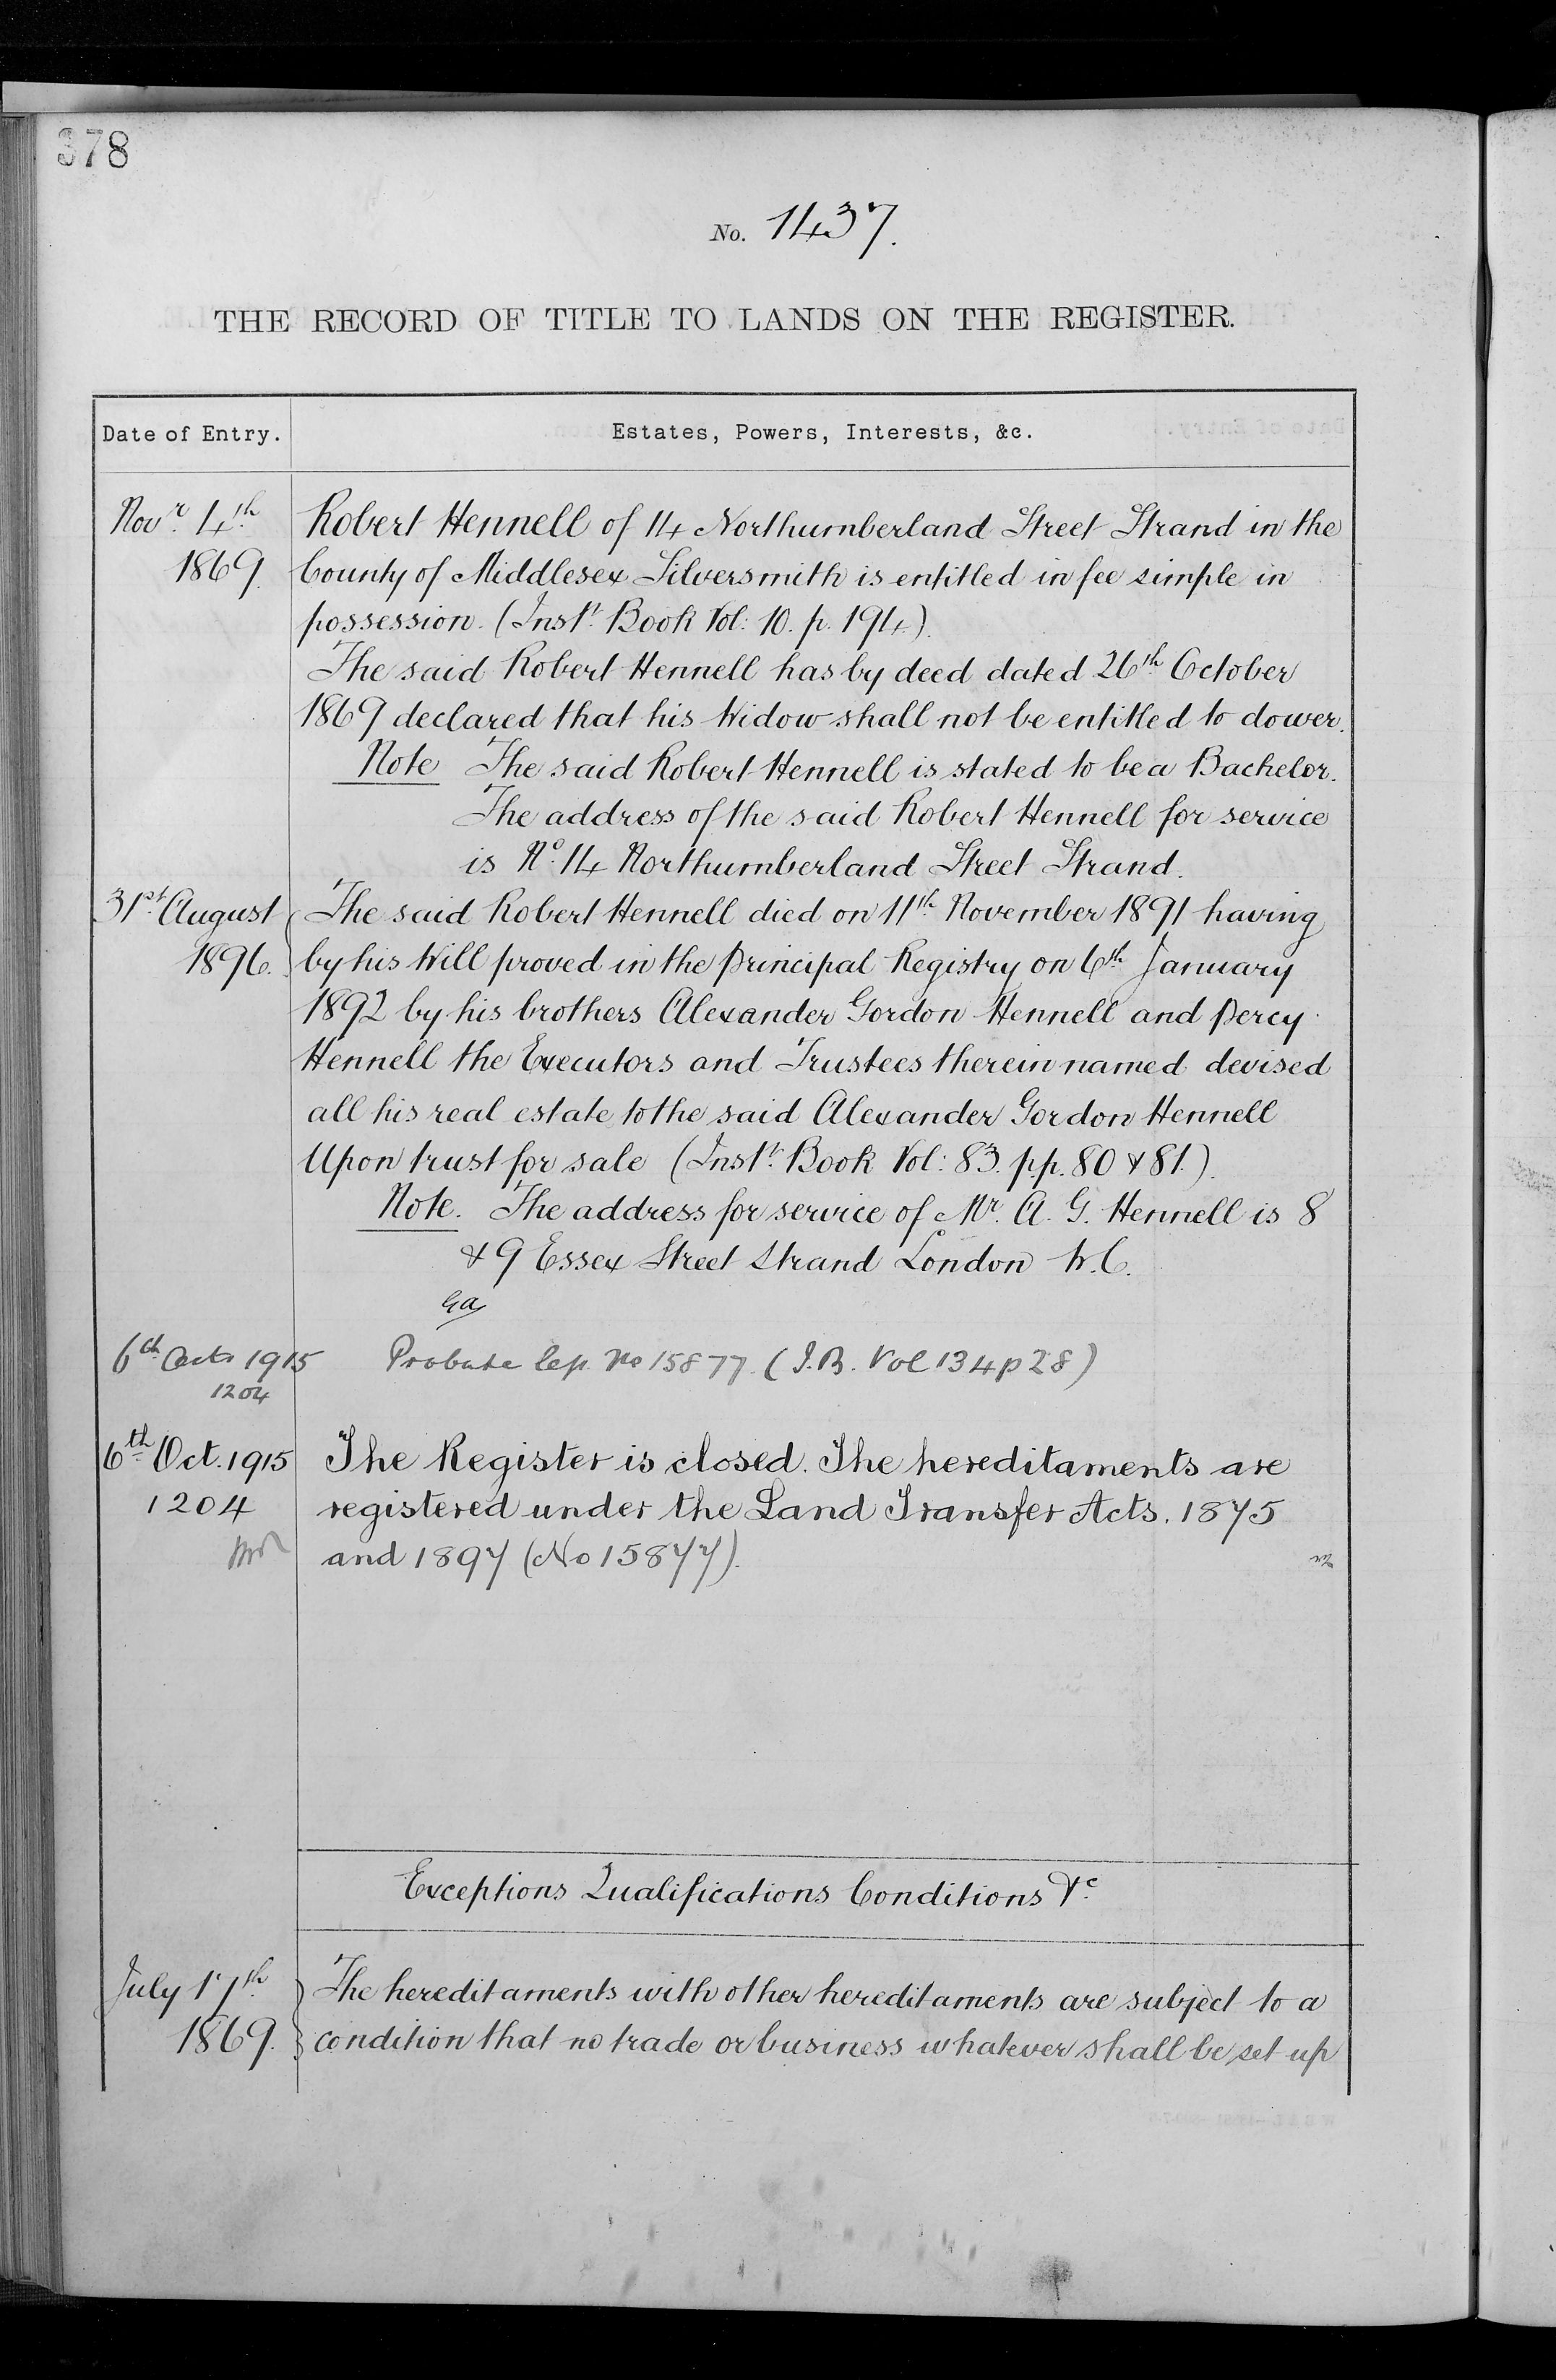 378
No. 1437.
THE RECORD OF TITLE TO LANDS ON THE REGISTER.
Date of Entry. Estates, Powers, Interests, &c.
Novr. 4th Robert Hennell of 14 Northumberland Street Strand in the
1869. County of Middlesex Silversmith is entitled in fee simple in
possession. (Inst. Book Vol: 10. p. 194.)
The said Robert Hennell has by deed dated 26th October
1869 declared that his Widow shall not be entitled to dower.
Note The said Robert Hennell is stated to be a Bachelor.
The address of the said Robert Hennell for service
is No. 14 Northumberland Street Strand.
31st August The said Robert Hennell died on 11th November 1891 having
1896. by his Will proved in the Principal Registry on 6th January
1892 by his brothers Alexander Gordon Hennell and Percy
Hennell the Executors and Trustees therein named devised
all his real estate to the said Alexander Gordon Hennell
Upon trust for sale (Inst. Book Vol: 83. pp. 80 & 81.)
Note. The address for service of Mr. A. G. Hennell is 8
& 9 Essex Street Strand London W.C.
6th Octr 1915 Probate No 15877. (I.B. Vol 134 p 28)
1204
6th Oct. 1915 The Register is closed. The hereditaments are
1204 registered under the Land Transfer Acts. 1875
and 1897 (No 15877).
Exceptions Qualifications Conditions &c.
July 17th The hereditaments with other hereditaments are subject to a
1869. condition that no trade or business whatever shall be set up